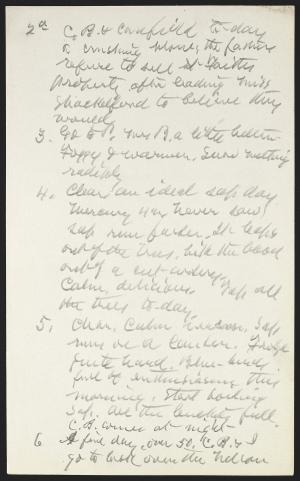 2d C. B. & Canfield to-day
a crushing blow, the farm
refuse to sell
property after leading Miss
Shackelford to believe they
would.
3. Go to P. Mrs B. a little better.
Foggy & warmer. Snow melting
rapidly.
4. Clear, an ideal sap day
Mercury 42, never saw
sap run faster. It leaps
out of the trees, like the blood
out of a cut artery.
Calm, delicious. Sap all
the trees to-day.
5. Clear, Calm, Sap
runs on a canter. Froze
quite hard. Blue-birds
full of this
morning. Start boiling
sap. All the buckets full.
C. B. comes at night—
6 A fine day, over 50. C. B. & I
go to look over the Nelson